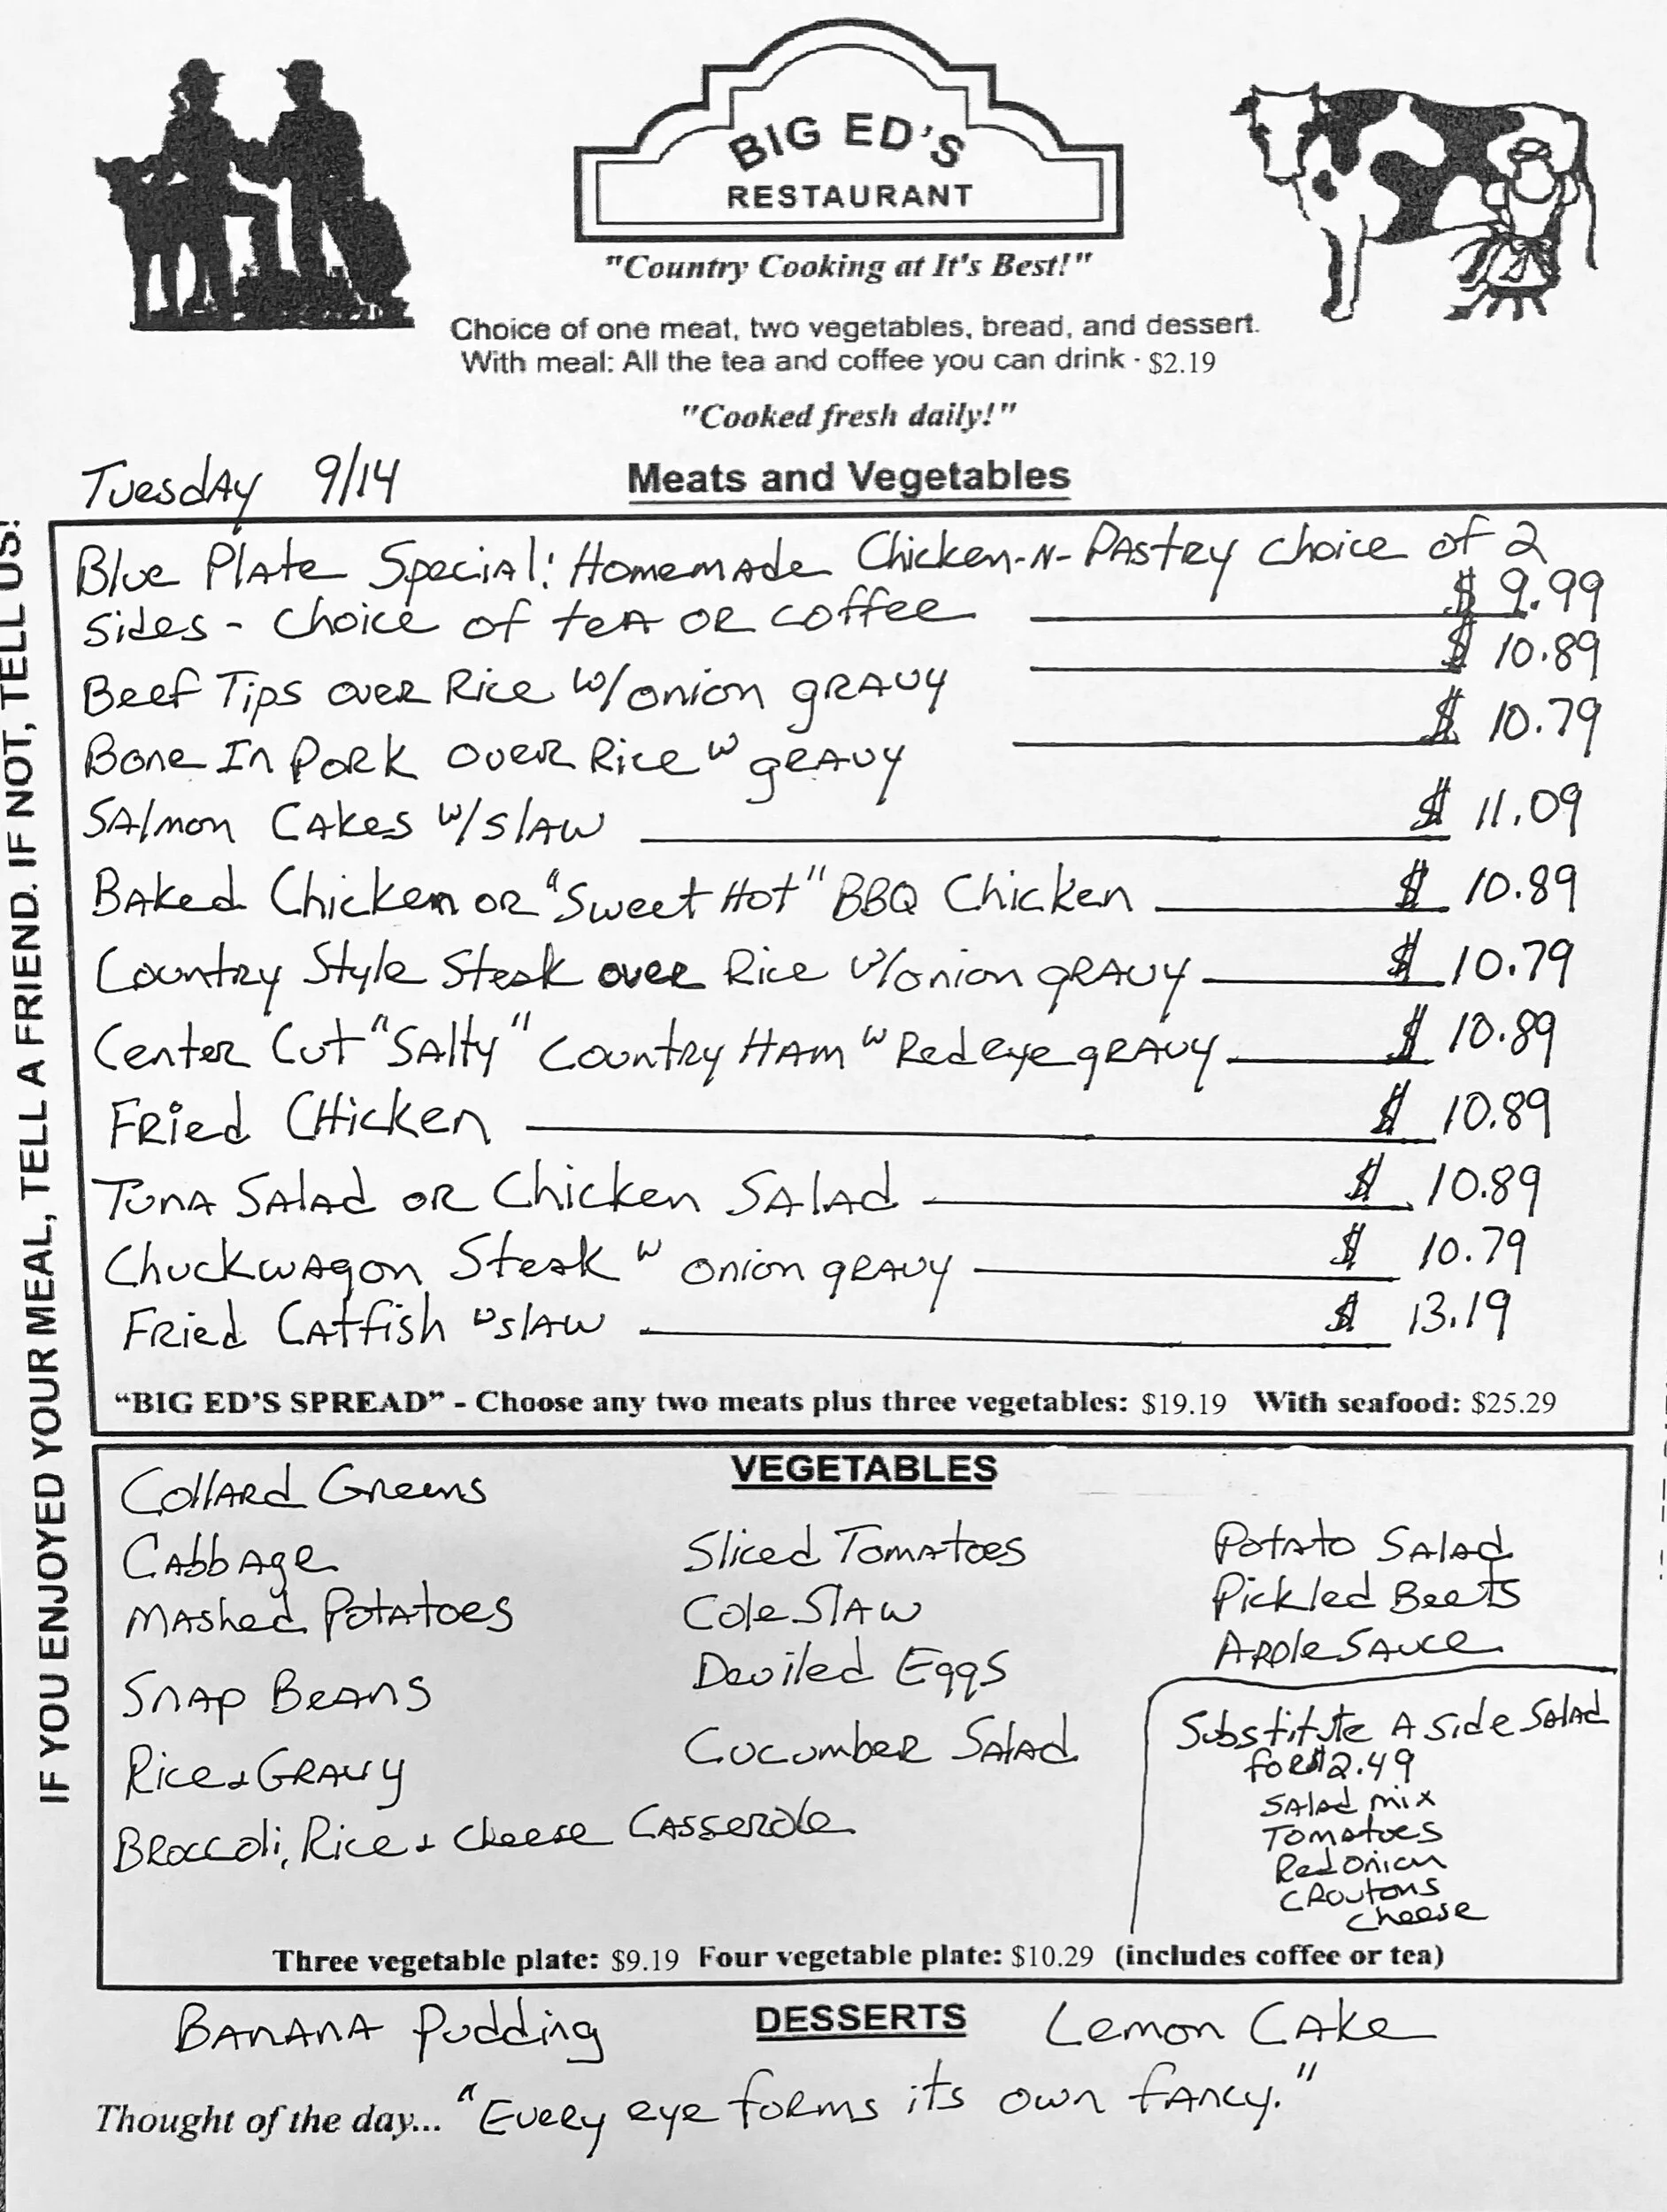 BIG ED'S
RESTAURANT
"Country Cooking at It's Best!"
Choice of one meat, two vegetables, bread, and dessert.
With meal: All the tea and coffee you can drink - $2.19
"Cooked fresh daily!"
Tuesday 9/14
Meats and Vegetables
Blue Plate Special: Homemade Chicken-N-Pastry choice of 2
sides - choice of tea or coffee $ 9.99
Beef Tips over Rice w/onion gravy $ 10.89
Bone In Pork over Rice w gravy $ 10.79
Salmon Cakes w/slaw $ 11.09
Baked Chicken or "Sweet Hot" BBQ Chicken $ 10.89
Country Style Steak over Rice w/onion gravy $ 10.79
Center Cut "Salty" Country Ham w Redeye gravy $ 10.89
Fried Chicken $ 10.89
Tuna Salad or Chicken Salad $ 10.89
Chuckwagon Steak w onion gravy $ 10.79
Fried Catfish w slaw $ 13.19
"BIG ED'S SPREAD" - Choose any two meats plus three vegetables: $19.19 With seafood: $25.29
VEGETABLES
Collard Greens
Cabbage
Mashed Potatoes
Snap Beans
Rice & Gravy
Broccoli, Rice & Cheese Casserole
Sliced Tomatoes
Cole Slaw
Deviled Eggs
Cucumber Salad
Potato Salad
Pickled Beets
Apple Sauce
Substitute A Side Salad
for $2.49
Salad mix
Tomatoes
Red Onion
Croutons
Cheese
Three vegetable plate: $9.19 Four vegetable plate: $10.29 (includes coffee or tea)
DESSERTS
Banana Pudding
Lemon Cake
Thought of the day... "Every eye forms its own fancy."
IF YOU ENJOYED YOUR MEAL, TELL A FRIEND. IF NOT, TELL US!